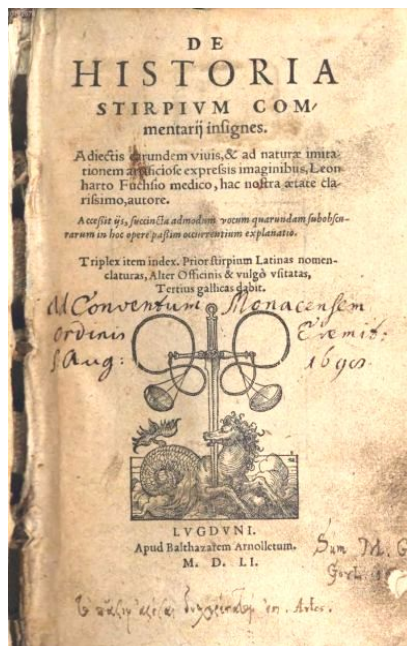 DE
HISTORIA
STIRPIVM COM-
mentarij insignes.
Adiectis earundem viuis, & ad naturæ imita-
tionem artificiose expressis imaginibus, Leon
harto Fuchsio medico, hac nostra ætate cla-
rissimo, autore.
Accessit ijs, succincta admodum vocum quarundam subobscu-
rarum in hoc opere passim occurrentium explanatio.
Triplex item index. Prior stirpium Latinas nomen-
claturas, Alter Officinis & vulgò vsitatas,
Tertius gallicas dabit.
Ad Conventum Monacensem
Ordinis Eremit:
S. Aug:
LVGDVNI.
Apud Balthazarem Arnolletum.
M. D. LI.
Sum M. G